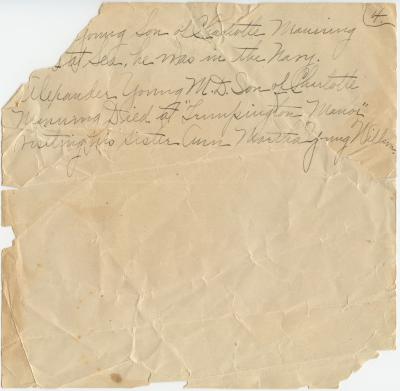 (4)
Young Son of Charlotte Manning
at sea, he was in the Navy.
Alexander Young M.D. Son of Charlotte
Manning Died at "Trumpington Manor"
visiting his sister Ann Martha Young